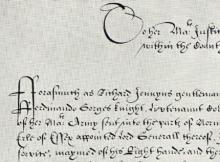 To her Ma: Justi
within the Count
Forasmuch as Richard Jennyns gentleman
Ferdinando Gorges knight, Leiutenant Col
of her Ma: Army sent into the parts of Nor
Erle of Essex appointed Lord Generall thereof
service, maymed of his Right hande, and the